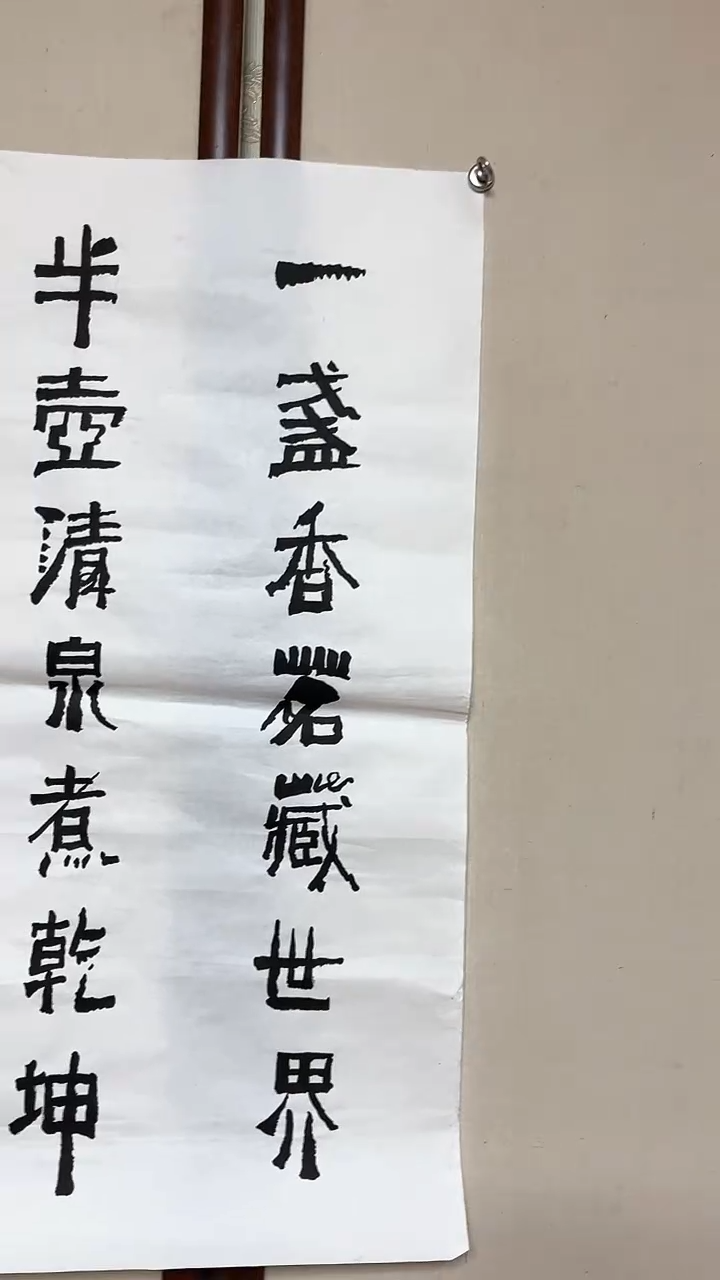 一盞香茗藏世界
半壺清泉煮乾坤